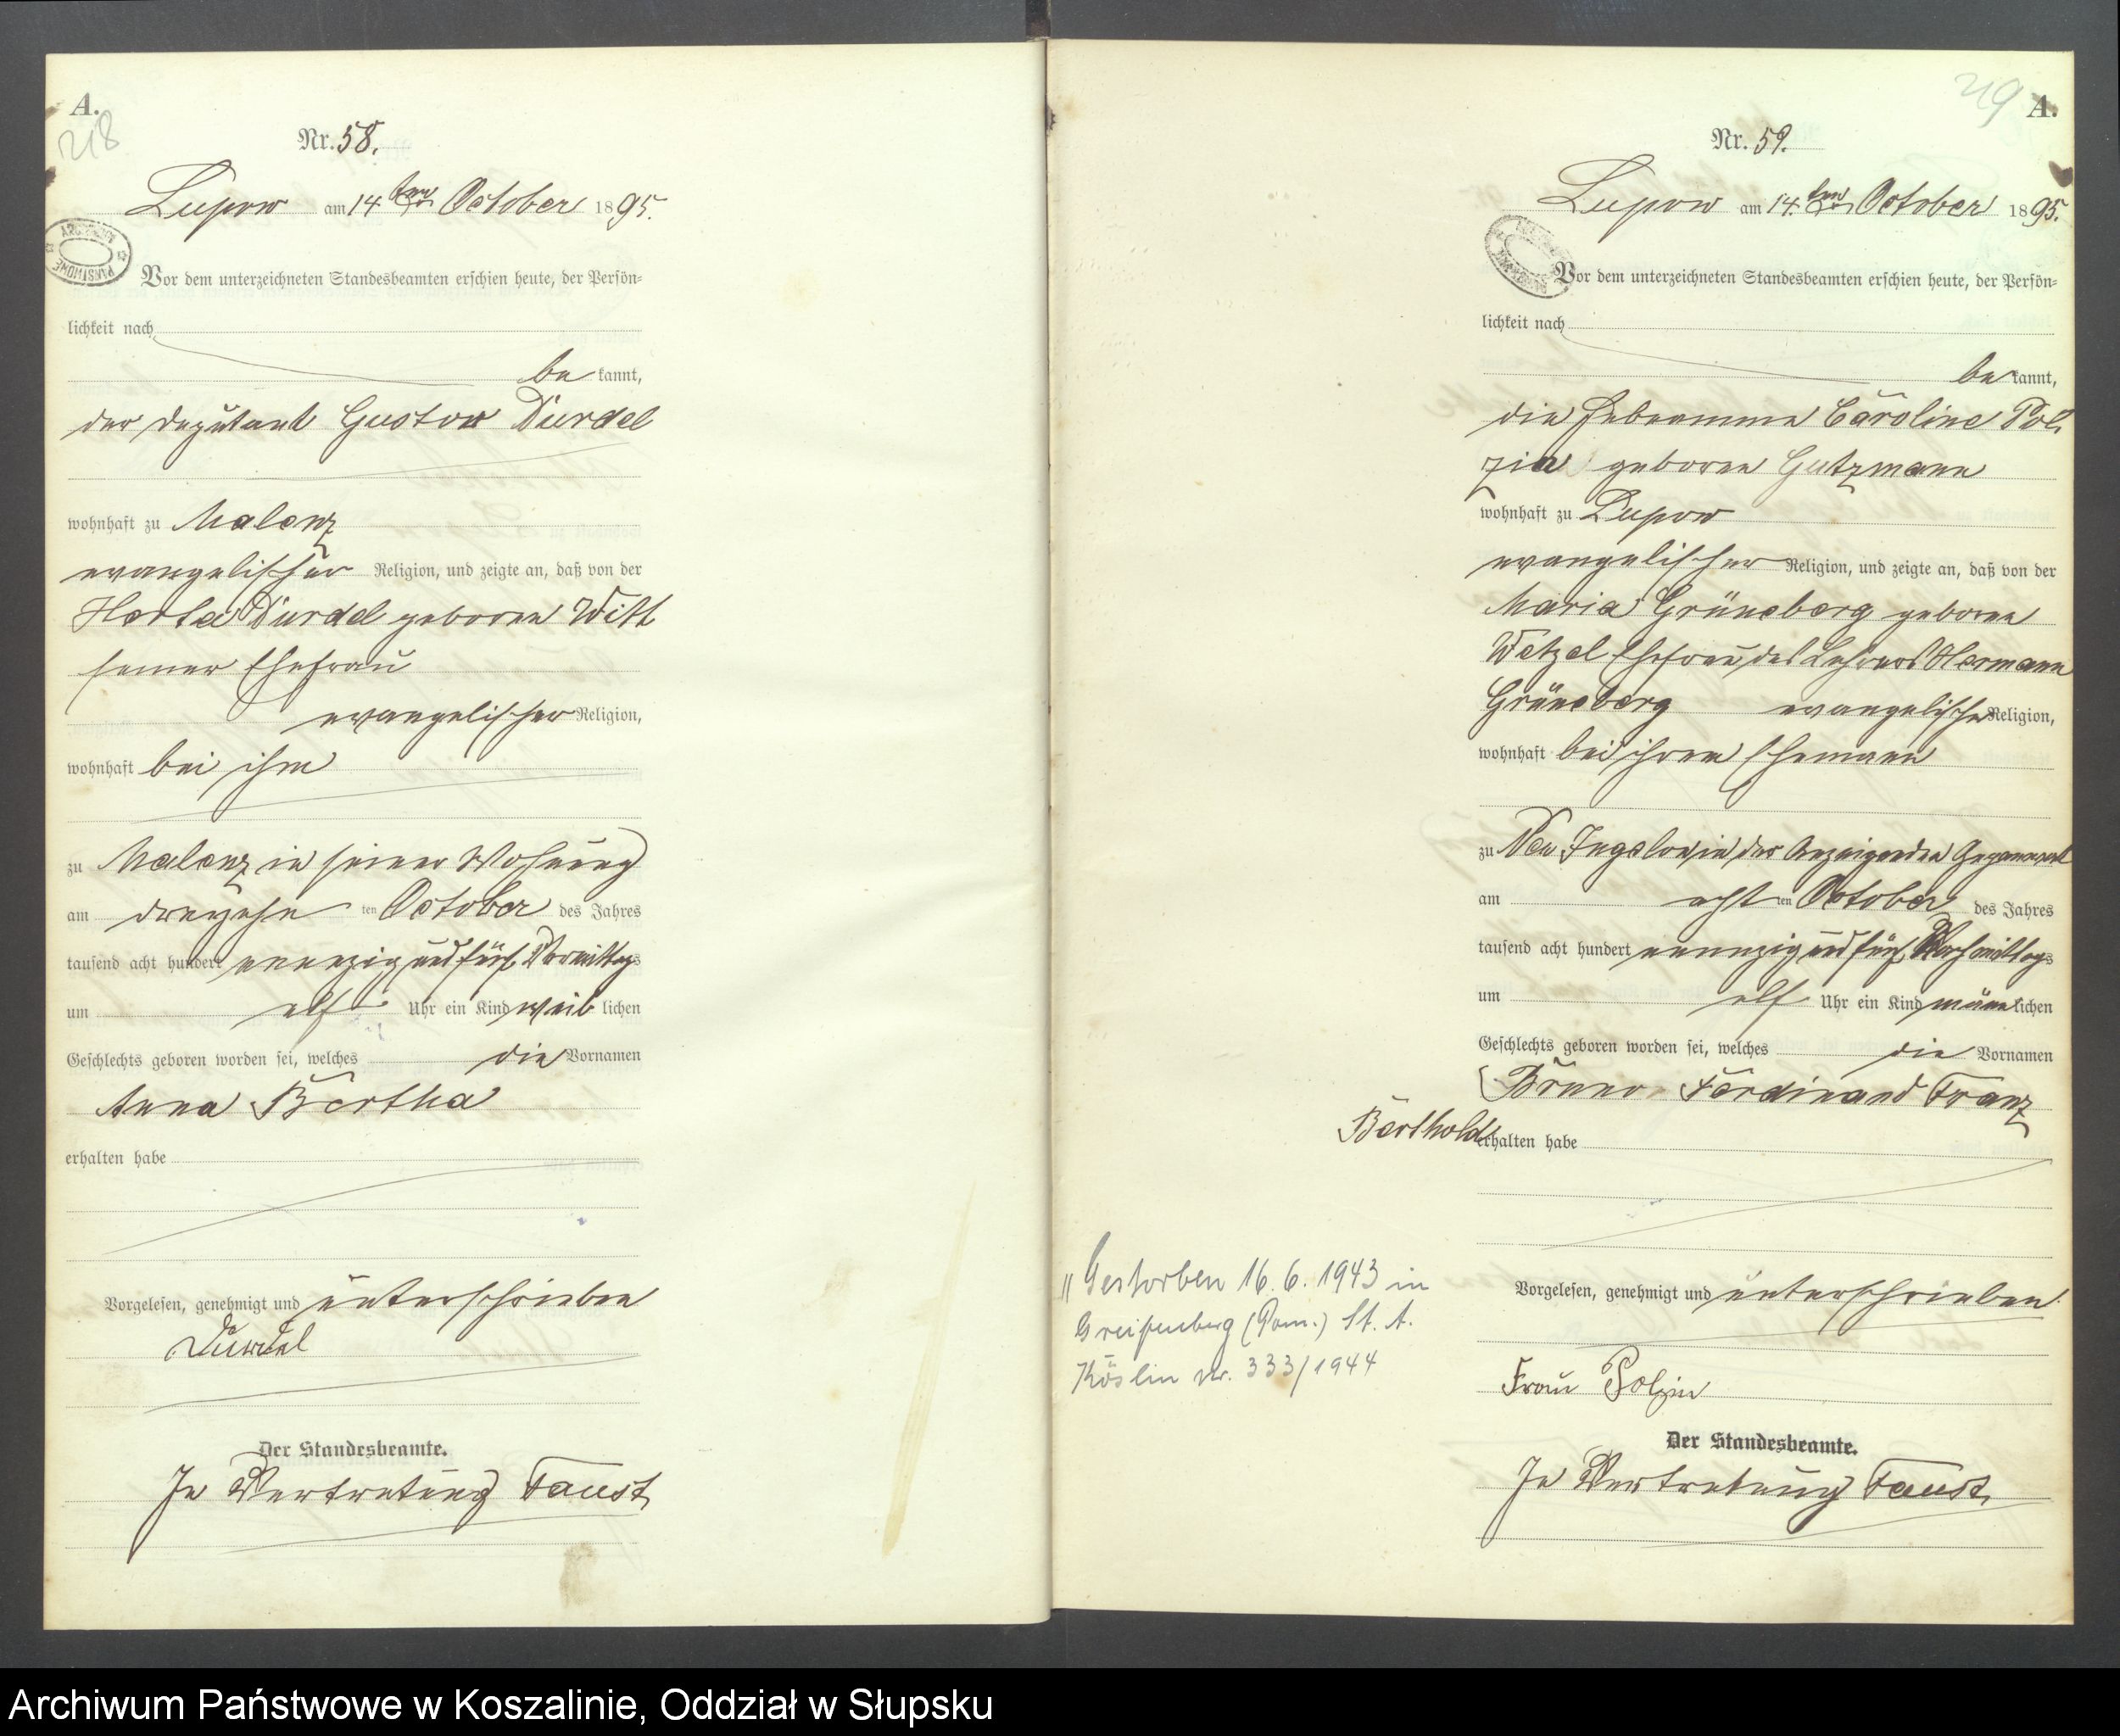 A.
218
Nr. 58.
Lupow am 14ten October 1895.
ARCHIWUM PAŃSTWOWE
Vor dem unterzeichneten Standesbeamten erschien heute, der Persön-
lichkeit nach
be kannt,
der Deputant Gustav Durdel
wohnhaft zu Malenz
evangelischer Religion, und zeigte an, daß von der
Herta Durdel geborene Witt
seiner Ehefrau
evangelischer Religion,
wohnhaft bei ihm
zu Malenz in seiner Wohnung
am dreizehn ten October des Jahres
tausend acht hundert neunzig und fünf Vormittags
um elf Uhr ein Kind weib lichen
Geschlechts geboren worden sei, welches die Vornamen
Anna Bertha
erhalten habe
Vorgelesen, genehmigt und unterschrieben
Durdel
Der Standesbeamte.
In Vertretung Faust
219
A.
Nr. 59.
Lupow am 14ten October 1895.
Vor dem unterzeichneten Standesbeamten erschien heute, der Persön-
lichkeit nach
be kannt,
die Hebeamme Caroline Pol-
zin geborene Gutzmann
wohnhaft zu Lupow
evangelischer Religion, und zeigte an, daß von der
Maria Grüneberg geborene
Wetzel Ehefrau des Lehrers Hermann
Grüneberg evangelischer Religion,
wohnhaft bei ihrem Ehemann
zu Neu Jugelow in der Anzeigenden Gegenwart
am acht ten October des Jahres
tausend acht hundert neunzig und fünf Nachmittags
um elf Uhr ein Kind männ lichen
Geschlechts geboren worden sei, welches die Vornamen
Bruno Ferdinand Franz
Berthold erhalten habe
"Gestorben 16.6.1943 in
Greifenberg (Pom.) St. A.
Köslin Nr. 333/1944
Vorgelesen, genehmigt und unterschrieben.
Frau Polzin
Der Standesbeamte.
In Vertretung Faust
Archiwum Państwowe w Koszalinie, Oddział w Słupsku